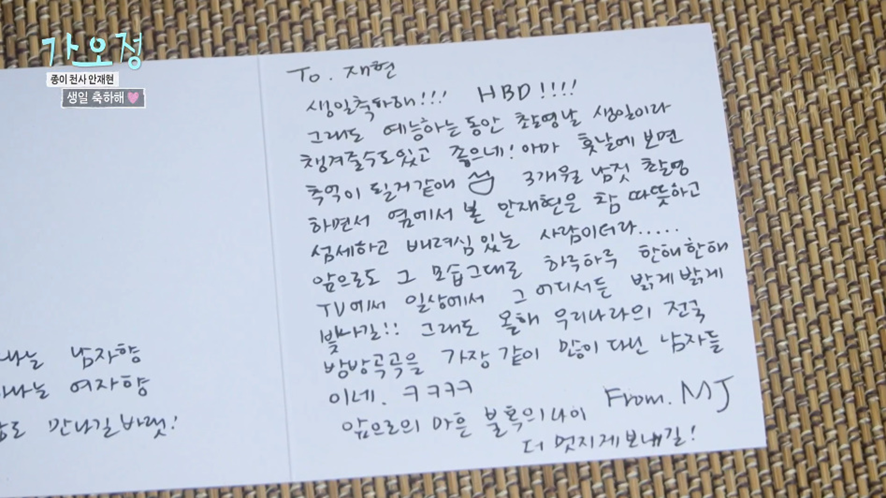 가오정
종이 천사 안재현
생일 축하해
To. 재현
생일축하해!!! HBD!!!!
그래도 예능하는동안 촬영날 생일이라
챙겨줄수도있고 좋으네! 아마 훗날에 보면
추억이 될거같애 3개월 남짓 촬영
하면서 옆에서 본 안재현은 참 따뜻하고
섬세하고 배려심있는 사람이더라.....
앞으로도 그 모습그대로 하루하루 한해한해
TV에서 일상에서 그 어디서든 밝게밝게
빛나길!! 그래도 올해 우리나라의 전국
방방곡곡을 가장 같이 많이 다닌 남자들
이네. ㅋㅋㅋㅋ
앞으로의 마흔 불혹의나이 From. MJ
더 멋지게보내길!
나는 남자향
나는 여자향
만나길바랫!